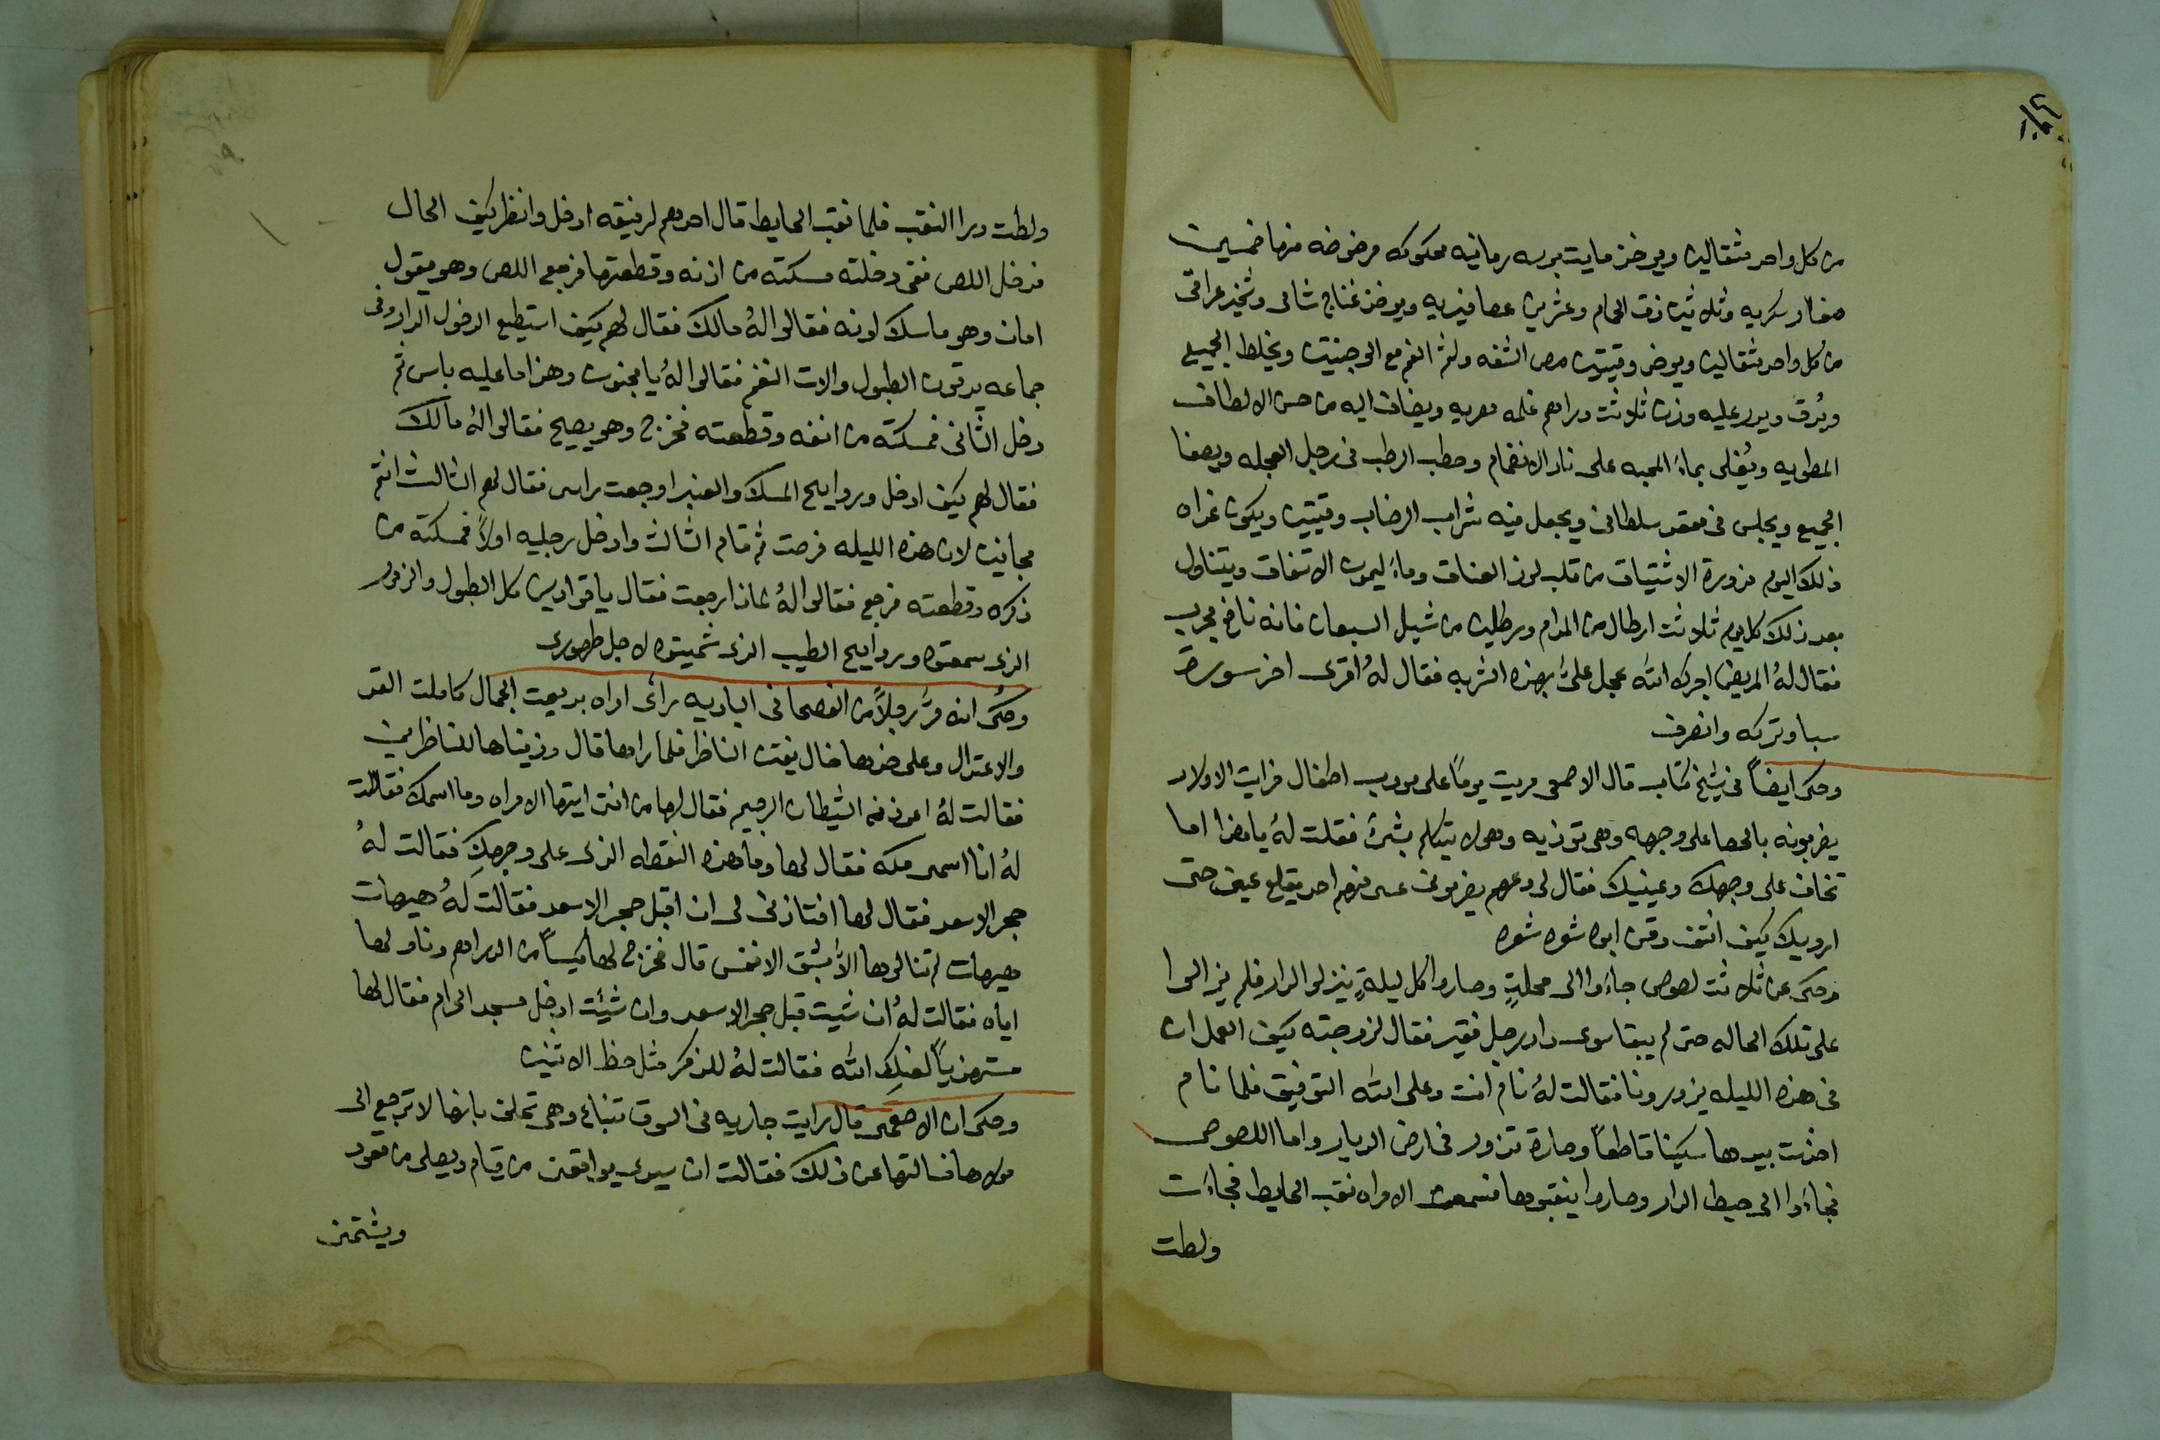 من كل واحد مثقالين ويوخذ مايت بوسه رمانيه محكوكه مرضوضه منها خمسين
صغار سكريه وثلاثين زق الحمام وعشرين عصافيريه ويوخذ غناج شامى وشخير عراقى
من كل واحد مثقالين ويوخذ وقيتين مص الشفه ولثم الفم مع الوجنيتن ويخلط الجميع
ويُدق ويدر عليه وزن ثلاثت دراهم غلمه مصريه ويضاف اليه من حسن الالطاف
المطويه ويُغلى بماء المحبه على نار الانضمام وحطب الرطب فى رجل العجله ويصفا
الجميع ويجلس فى مقعد سلطانى ويجعل فيه شراب الرضاب وقيتين ويكون غداه
ذلك اليوم مزورة الاشتياق من قلب لوز العناق وماء ليمون الاتفاق ويتناول
بعد ذلك كل يوم ثلاثت ارطال من المدام ورطلين من شيل السيعان فانه نافع مجرب
فقال لهُ المريض اجرك الله عجل علىّ بهذه الشربه فقال لهُ اقرى اخر سورة
سبا وتركه وانصرف
وحكى ايضاً فى شيخ كتاب قال الاصمعى مريت يوماً على مودب اطفال فرايت الاولاد
يضربونه بالحصا على وجهه وهى توذيه وهو لا يتكلم بشئ فقلت لهُ يا هذا اما
تخاف على وجهك وعينيك فقال لى دعهم يضربونى عسى منهم احد يقلع عينى حتى
اوريك كيف انتف دقن ابوه شوه شوه
وحكى عن ثلاثت لصوص جاءوا الى محلةٍ وصاروا كل ليلةٍ ينزلوا لدار فلم يزالوا
على تلك الحاله حتى لم يبقا سوى دار رجل فقير فقال لزوجته كيف العمل ان
فى هذه الليله يزورونا فقالت لهُ نام انت وعلى الله التوفيق فلما نام
اخذت بيدها سكينا قاطعاً وصارة تدور فى ارض الديار واما اللصوص
فجاءوا الى حيط الدار وصاروا ينقبوها فسمعت الامراه نقب الحايط فجاءت
ولطت
ولطت ورا النقب فلما نقب الحايط قال احدهم لرفيقه ادخل وانظر كيف الحال
فدخل اللص فقى دخلته مسكته من اذنه وقطعتها فرجع اللص وهو يقول
امان وهو ماسك اونه فقالوا لهُ مالك فقال لهم كيف استطيع الدخول الدار وفى
جماعه يدقون الطبول والات النغم فقالوا لهُ يا مجنون وهذا ما عليه باس ثم
دخل الثانى فمسكته من انفه وقطعته فخرج وهو يصيح فقالوا لهُ مالك
فقال لهم كيف ادخل وروايح المسك والعنبر اوجعت راسى فقال لهم الثالث انتم
مجانين لان هذه الليله فرصت ثم قام الثالث وادخل رجليه اولاً فمسكته من
ذكره وقطعته فرجع فقالوا لهُ لماذا رجعت فقال يا قوادين كل الطبول والزمور
الذى سمعتوه وروايح الطيب الذى شميتوه لاجل طهورى
وحُكى انه مرَّ رجلاً من الفصحا فى الباديه راى امراه بديعت الجمال كاملت القد
والاعتدال وعلى خدها خال يفتن الناظر فلما راها قال وزيناها للناظرين
فقالت لهُ اعوذ من الشيطان الرجيم فقال لها من انت ايتها الامراه وما اسمك فقالت
لهُ انا اسمى مكه فقال لها وما هذه النقطه الذى على وجهكِ فقالت لهُ
حجر الاسعد فقال لها افتاذنى لى ان اقبل حجر الاسعد فقالت لهُ هيهات
هيهات لم تنالوها الاَّ بشق الانفس قال فخرج لها كيساً من الدراهم وناولها
اياه فقالت لهُ ان شيت قبل حجر الاسعد وان شئيت ادخل مسجد الحرام فقال لها
مستهزياً لعنكِ الله فقالت لهُ للذكر مثل حظ الاثنين
وحكى ان الاصمعى قال رايت جاريه فى السوق تنباع وهى تحلف بانها لا ترجع الى
مولاها فسالتها عن ذلك فقالت ان سيدى يواقعنى من قيام ويصلى من قعود
ويشتمنى